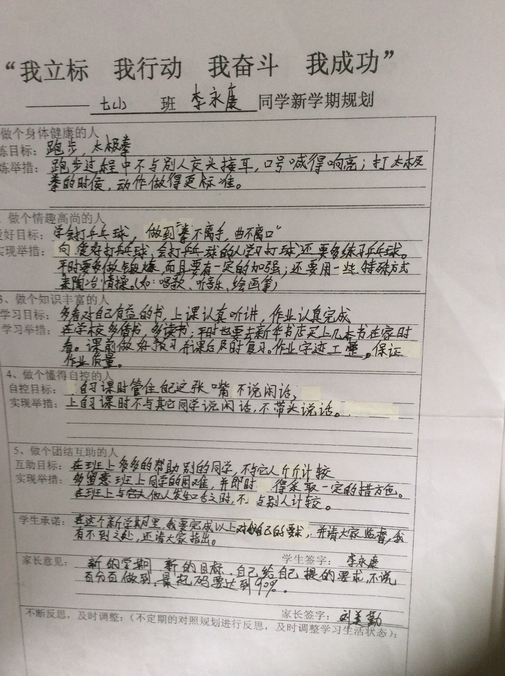 “我立标 我行动 我奋斗 我成功”
班 李永康 同学新学期规划
做个身体健康的人
练目标：跑步，太极拳
练举措：跑步过程中不与别人交头接耳，口号喊得响亮；打太极
拳的时候，动作做得更标准。
、做个情趣高尚的人
爱好目标：学会打乒乓球，做到“拳不离手，曲不离口”
实现举措：向爱好打乒乓球，会打乒乓球的人学习打球还要多练习乒乓球。
平时要多做锻炼，而且要有一定的加强；还要用一些特殊方式
来陶冶情操（如：唱歌、听音乐，绘画等）
3、做个知识丰富的人
学习目标：多看对自己有益的书，上课认真听讲，作业认真完成
学习举措：在学校多借书，多读书，平时也要去新华书店买上几本书在家时
看。课前做好预习，课后及时复习，作业字迹工整，保证
作业质量。
4、做个懂得自控的人
自控目标：自习课时管住自己这张嘴不说闲话，
实现举措：上自习课时不与其它同学说闲话，不带头说话。
5、做个团结互助的人
互助目标：在班上多多的帮助别的同学，不与它人斤斤计较
实现举措：多留意班上同学的困难，并即时 得采取一定的措方色。
在班上与它人发生口舌之时，不与别人计较。
学生承诺：在这个新学期里，我要完成以上对自己的要求，并请大家监督，我
有不到之处，还请大家指出。
学生签字：李永康
家长意见：新的学期 新的目标，自己给自己提的要求，不说
百分百做到，最起码要达到90%。
家长签字：刘美勤
不断反思，及时调整：（不定期的对照规划进行反思，及时调整学习生活状态）：